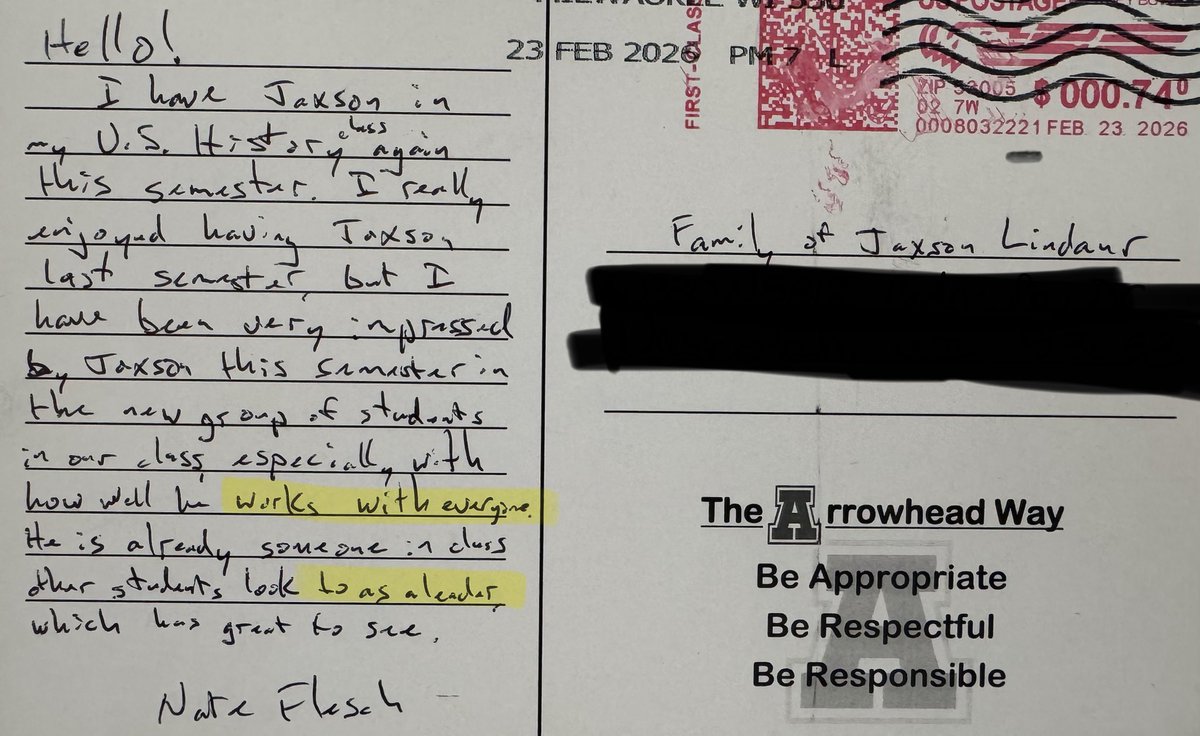 Hello!
I have Jaxson in
my U.S. History class again
this semester. I really
enjoyed having Jaxson
last semester, but I
have been very impressed
by Jaxson this semester in
the new group of students
in our class, especially with
how well he works with everyone.
He is already someone in class
other students look to as a leader,
which has great to see.
Nate Flesch
23 FEB 2026 PM 7 L
FIRST-CLASS
US POSTAGE
ZIP 53005
02 7W
$ 000.74⁰
0008032221 FEB 23 2026
Family of Jaxson Lindaur
The Arrowhead Way
Be Appropriate
Be Respectful
Be Responsible